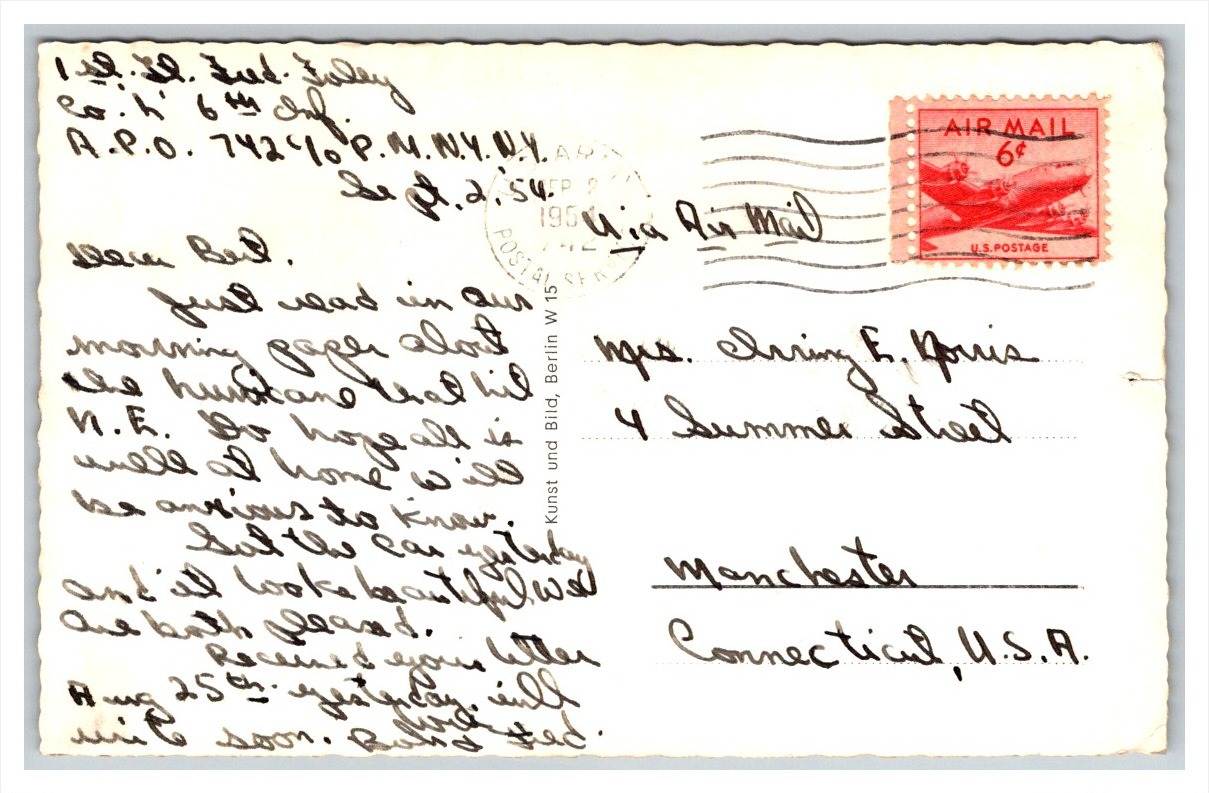 1st. Lt. Fred. Foley
Co. L 6th Inf.
A.P.O. 742 c/o P.M. N.Y. N.Y.
Sept. 2, '54.
Dear Bert.
Just read in our
morning paper about
the hurricane that hit
N.E. Do hope all is
well at home will
be anxious to know.
Got the car yesterday
and it looks beautiful. We
are both pleased.
Received your letter
Aug 25th. yesterday. will
write soon. Love
Fred.
ARMY
SEP 2
1954
742
POSTAL SERV
Via Air Mail
AIR MAIL
6¢
U.S. POSTAGE
Kunst und Bild, Berlin W 15
Mrs. Irving E. Norris
4 Summer Street
Manchester
Connecticut, U.S.A.